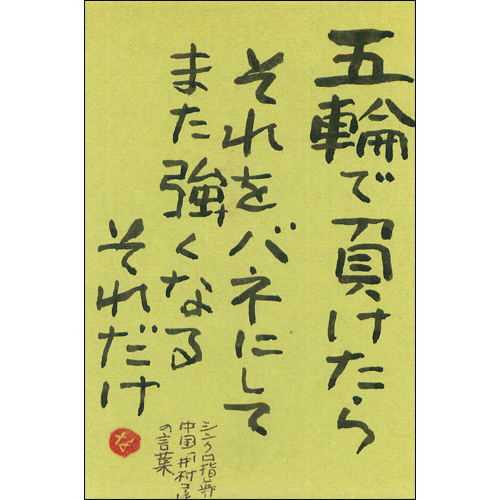 五輪で負けたら
それをバネにして
また強くなる
それだけ
シンクロ指導
中国 井村
の言葉